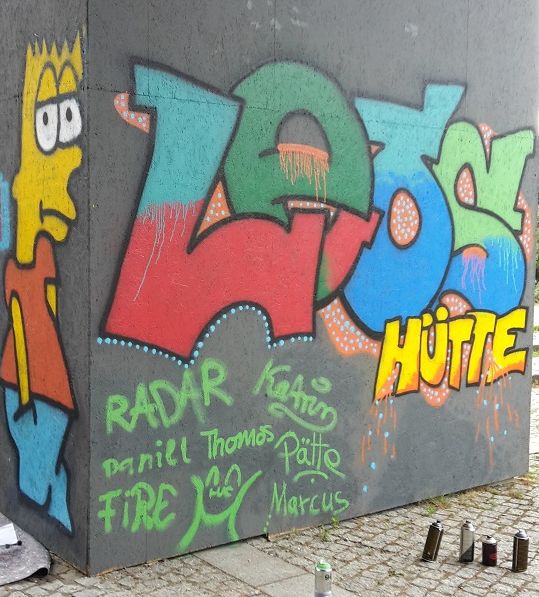 LeOS
HÜTTE
RADAR
Katrin
Daniel
Thomas
Pätte
FiRE
Marcus